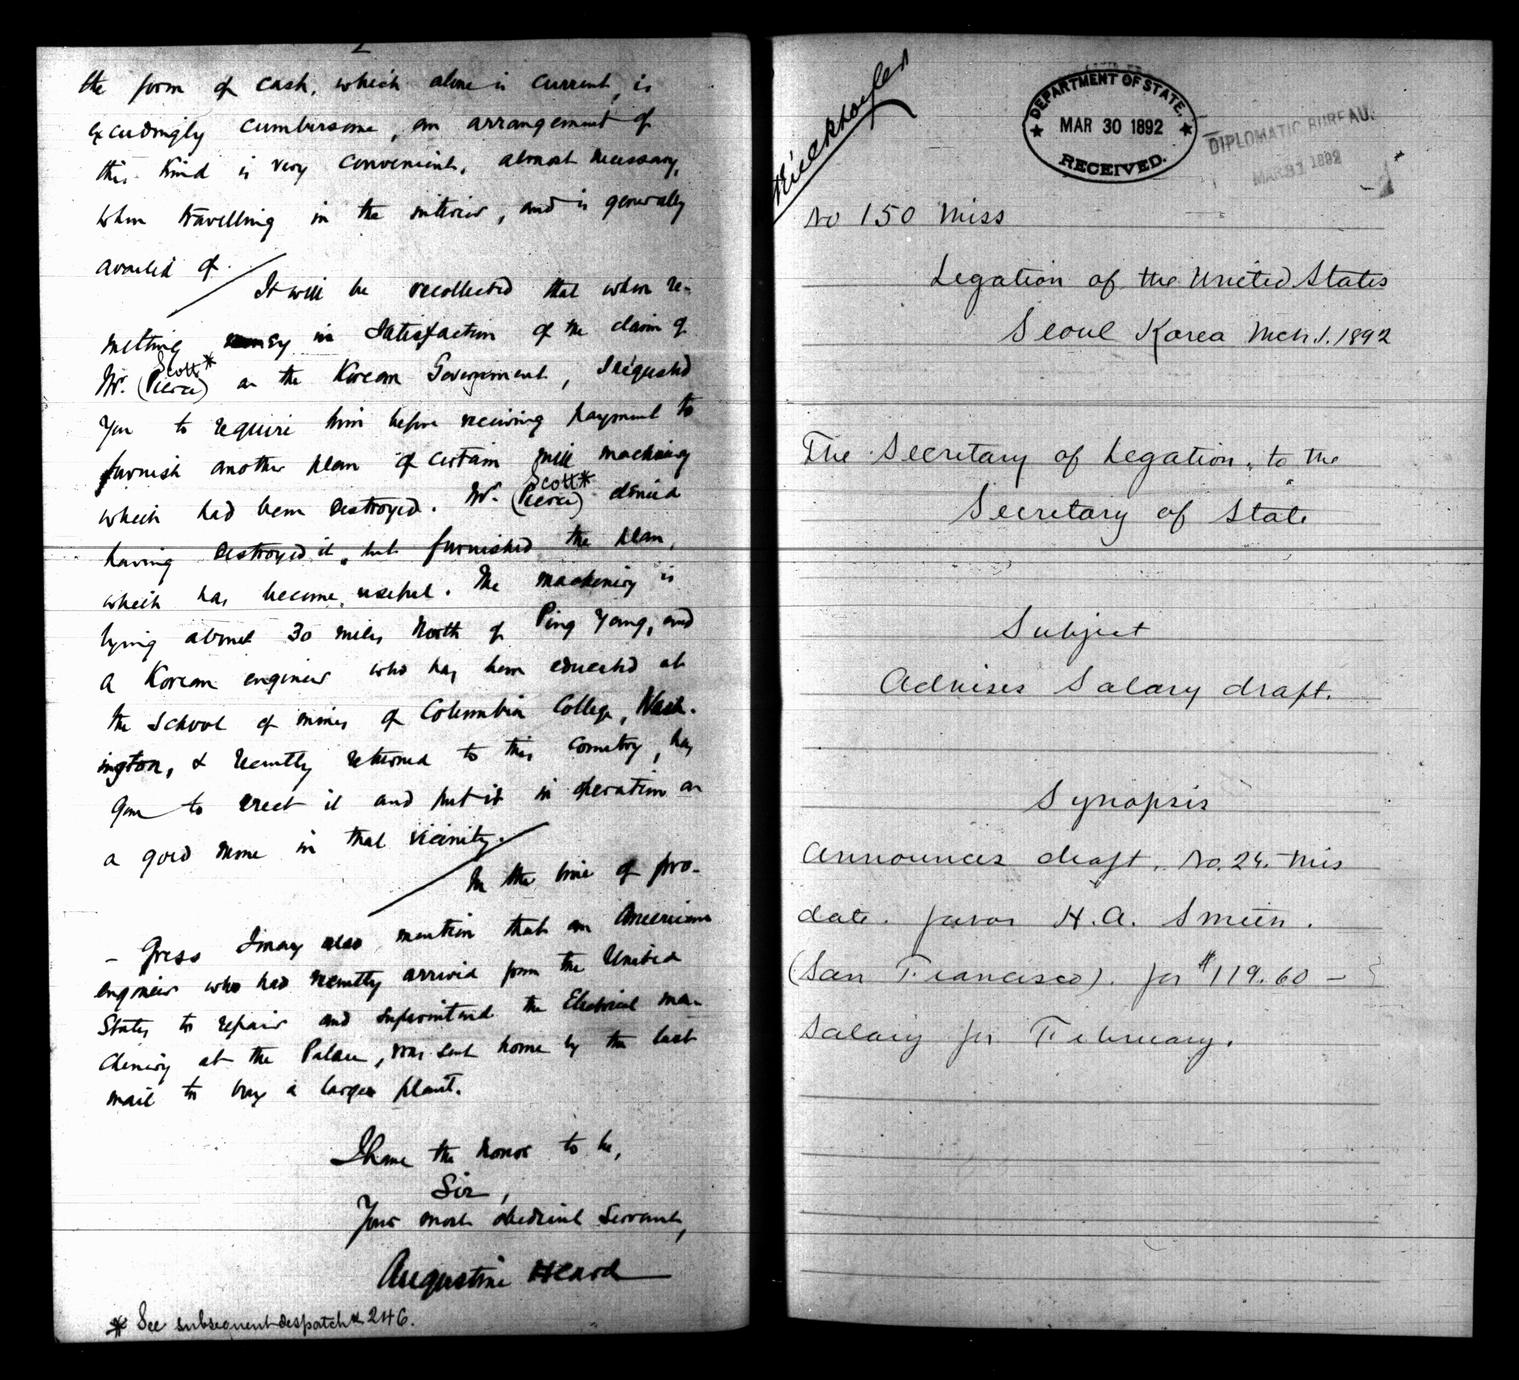 2
the form of cash, which alone is current, is
exceedingly cumbersome, an arrangement of
this kind is very convenient, almost necessary,
when travelling in the interior, and is generally
availed of.
It will be recollected that when re-
mitting money in satisfaction of the claim of
Scott*
Mr. (Pierce) on the Korean Government, I requested
you to require him before receiving payment to
furnish another plan of certain mill machinery
Scott*
which had been destroyed. Mr. (Pierce) denied
having destroyed it, but furnished the plan,
which has become useful. The machinery is
lying about 30 miles North of Ping Yang, and
a Korean engineer who has been educated at
the School of mines of Columbia College, Wash-
ington, & recently returned to this country, has
gone to erect it and put it in operation on
a gold mine in that vicinity.
In the line of pro-
-gress I may also mention that an American
engineer who had recently arrived from the United
States to repair and superintend the Electrical ma-
chinery at the Palace, was sent home by the last
mail to buy a larger plant.
I have the honor to be,
Sir,
Your most obedient servant,
Augustine Heard
* See subsequent despatch 246.
DEPARTMENT OF STATE.
MAR 30 1892
RECEIVED.
DIPLOMATIC BUREAU.
MAR 31 1892
No 150 Miss
Legation of the United States
Seoul Korea Mch. 1. 1892
The Secretary of Legation, to the
Secretary of State
Subject
Advises Salary draft.
Synopsis
Announces draft, No. 24. this
date. favor H. A. Smith.
(San Francisco). for $119.60 -
Salary for February.